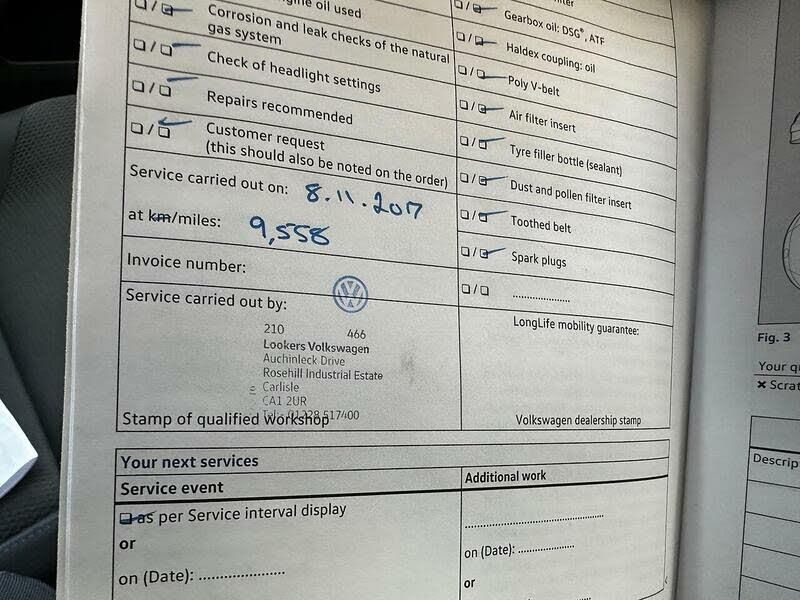 engine oil used
Corrosion and leak checks of the natural
gas system
Check of headlight settings
Repairs recommended
Customer request
(this should also be noted on the order)
Service carried out on: 8.11.2017
at km/miles: 9,558
Invoice number:
Service carried out by:
210 466
Lookers Volkswagen
Auchinleck Drive
Rosehill Industrial Estate
Carlisle
CA1 2UR
Tel: 01228 517400
Stamp of qualified workshop
Gearbox oil: DSG®, ATF
Haldex coupling: oil
Poly V-belt
Air filter insert
Tyre filler bottle (sealant)
Dust and pollen filter insert
Toothed belt
Spark plugs
LongLife mobility guarantee:
Volkswagen dealership stamp
Your next services
Service event
as per Service interval display
or
on (Date):
Additional work
on (Date):
or
Fig. 3
Your
Scrat
Descrip